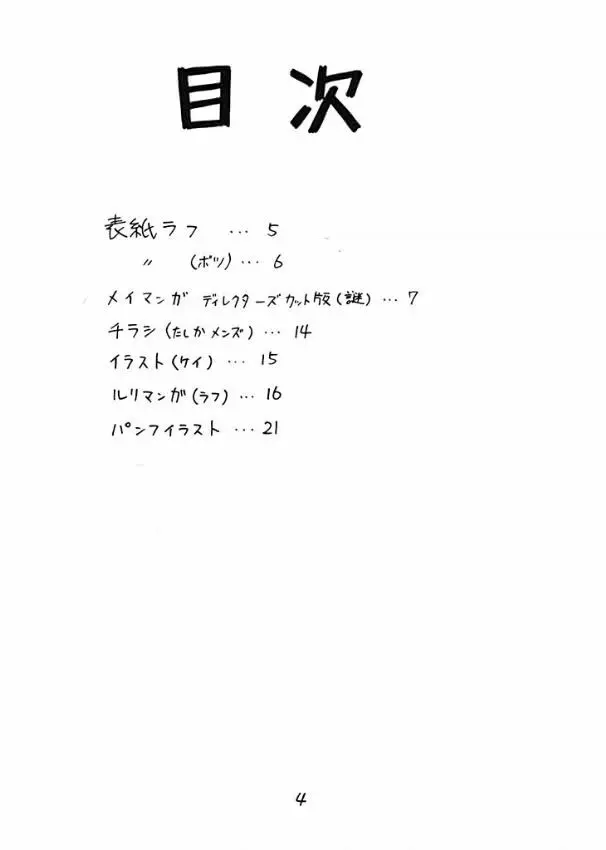 目次
表紙ラフ … 5
〃 (ボツ) … 6
メイマンガ ディレクターズカット版(謎) … 7
チラシ(たしかメンズ) … 14
イラスト(ケイ) … 15
ルリマンガ(ラフ) … 16
パンフイラスト … 21
4